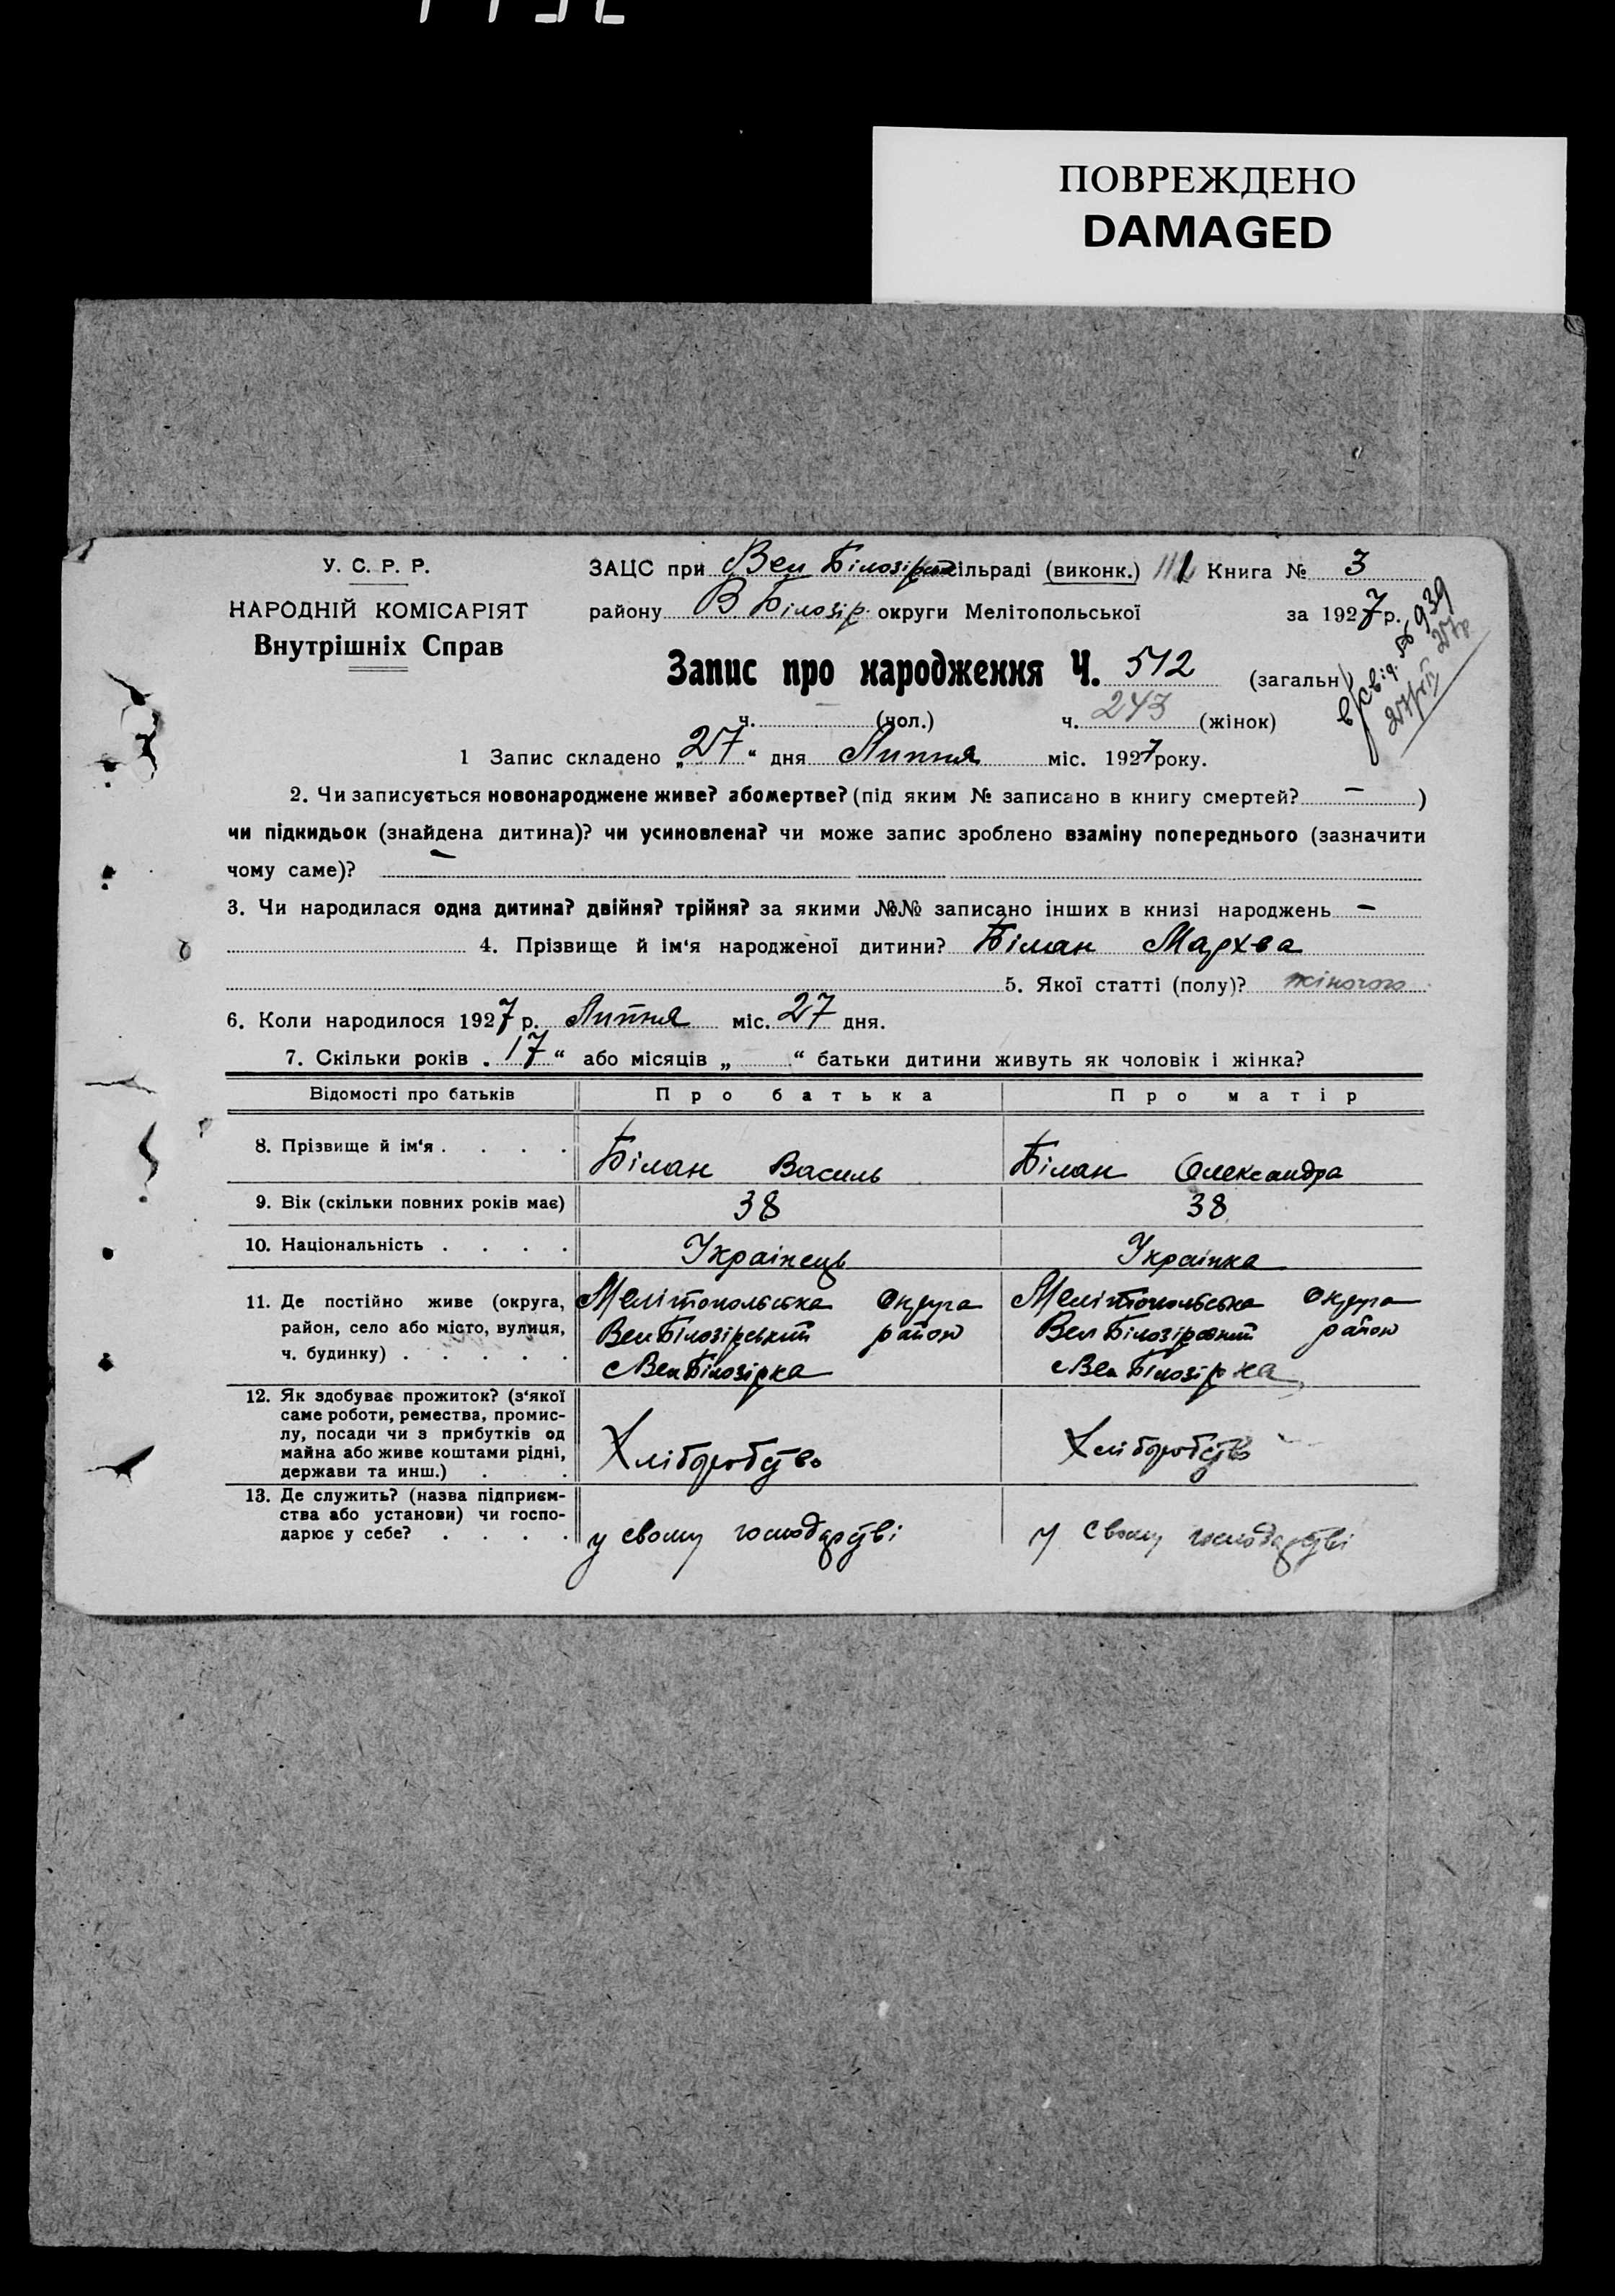 ПОВРЕЖДЕНО
DAMAGED
У. С. Р. Р.
НАРОДНІЙ КОМІСАРІЯТ
Внутрішніх Справ
ЗАЦС при Вел Білозірській сільраді (виконк.) Книга № 3
району В Білозір. округи Мелітопольської за 1927 р.
Запис про народження Ч. 512 (загальн.)
ч. — (чол.) ч. 243 (жінок)
в/свід. № 939
1 Запис складено „27“ дня Липня міс. 1927 року.
2. Чи записується новонароджене живе? або мертве? (під яким № записано в книгу смертей? — )
чи підкидьок (знайдена дитина)? чи усиновлена? чи може запис зроблено взаміну попереднього (зазначити
чому саме)? —
3. Чи народилася одна дитина? двійня? трійня? за якими №№ записано інших в книзі народжень —
4. Прізвище й ім'я народженої дитини? Білан Мархва
5. Якої статті (полу)? жіночого
6. Коли народилося 1927 р. Липня міс. 27 дня.
7. Скільки років „17“ або місяців „ “ батьки дитини живуть як чоловік і жінка?
Відомості про батьків Про батька Про матір
8. Прізвище й ім'я . . . . Білан Василь Білан Олександра
9. Вік (скільки повних років має) 38 38
10. Національність . . . . Украінець Украінка
11. Де постійно живе (округа, Мелітопольська округа Мелітопольська округа
район, село або місто, вулиця, Вел Білозірський район Вел Білозірський район
ч. будинку) . . . . . с Вел Білозірка с Вел Білозірка
12. Як здобуває прожиток? (з'якої
саме роботи, ремества, промис-
лу, посади чи з прибутків од
майна або живе коштами рідні, Хліборобство Хліборобство
держави та инш.) . . .
13. Де служить? (назва підприєм-
ства або установи) чи госпо-
дарює у себе? . . . . у свому господарстві у свому господарстві